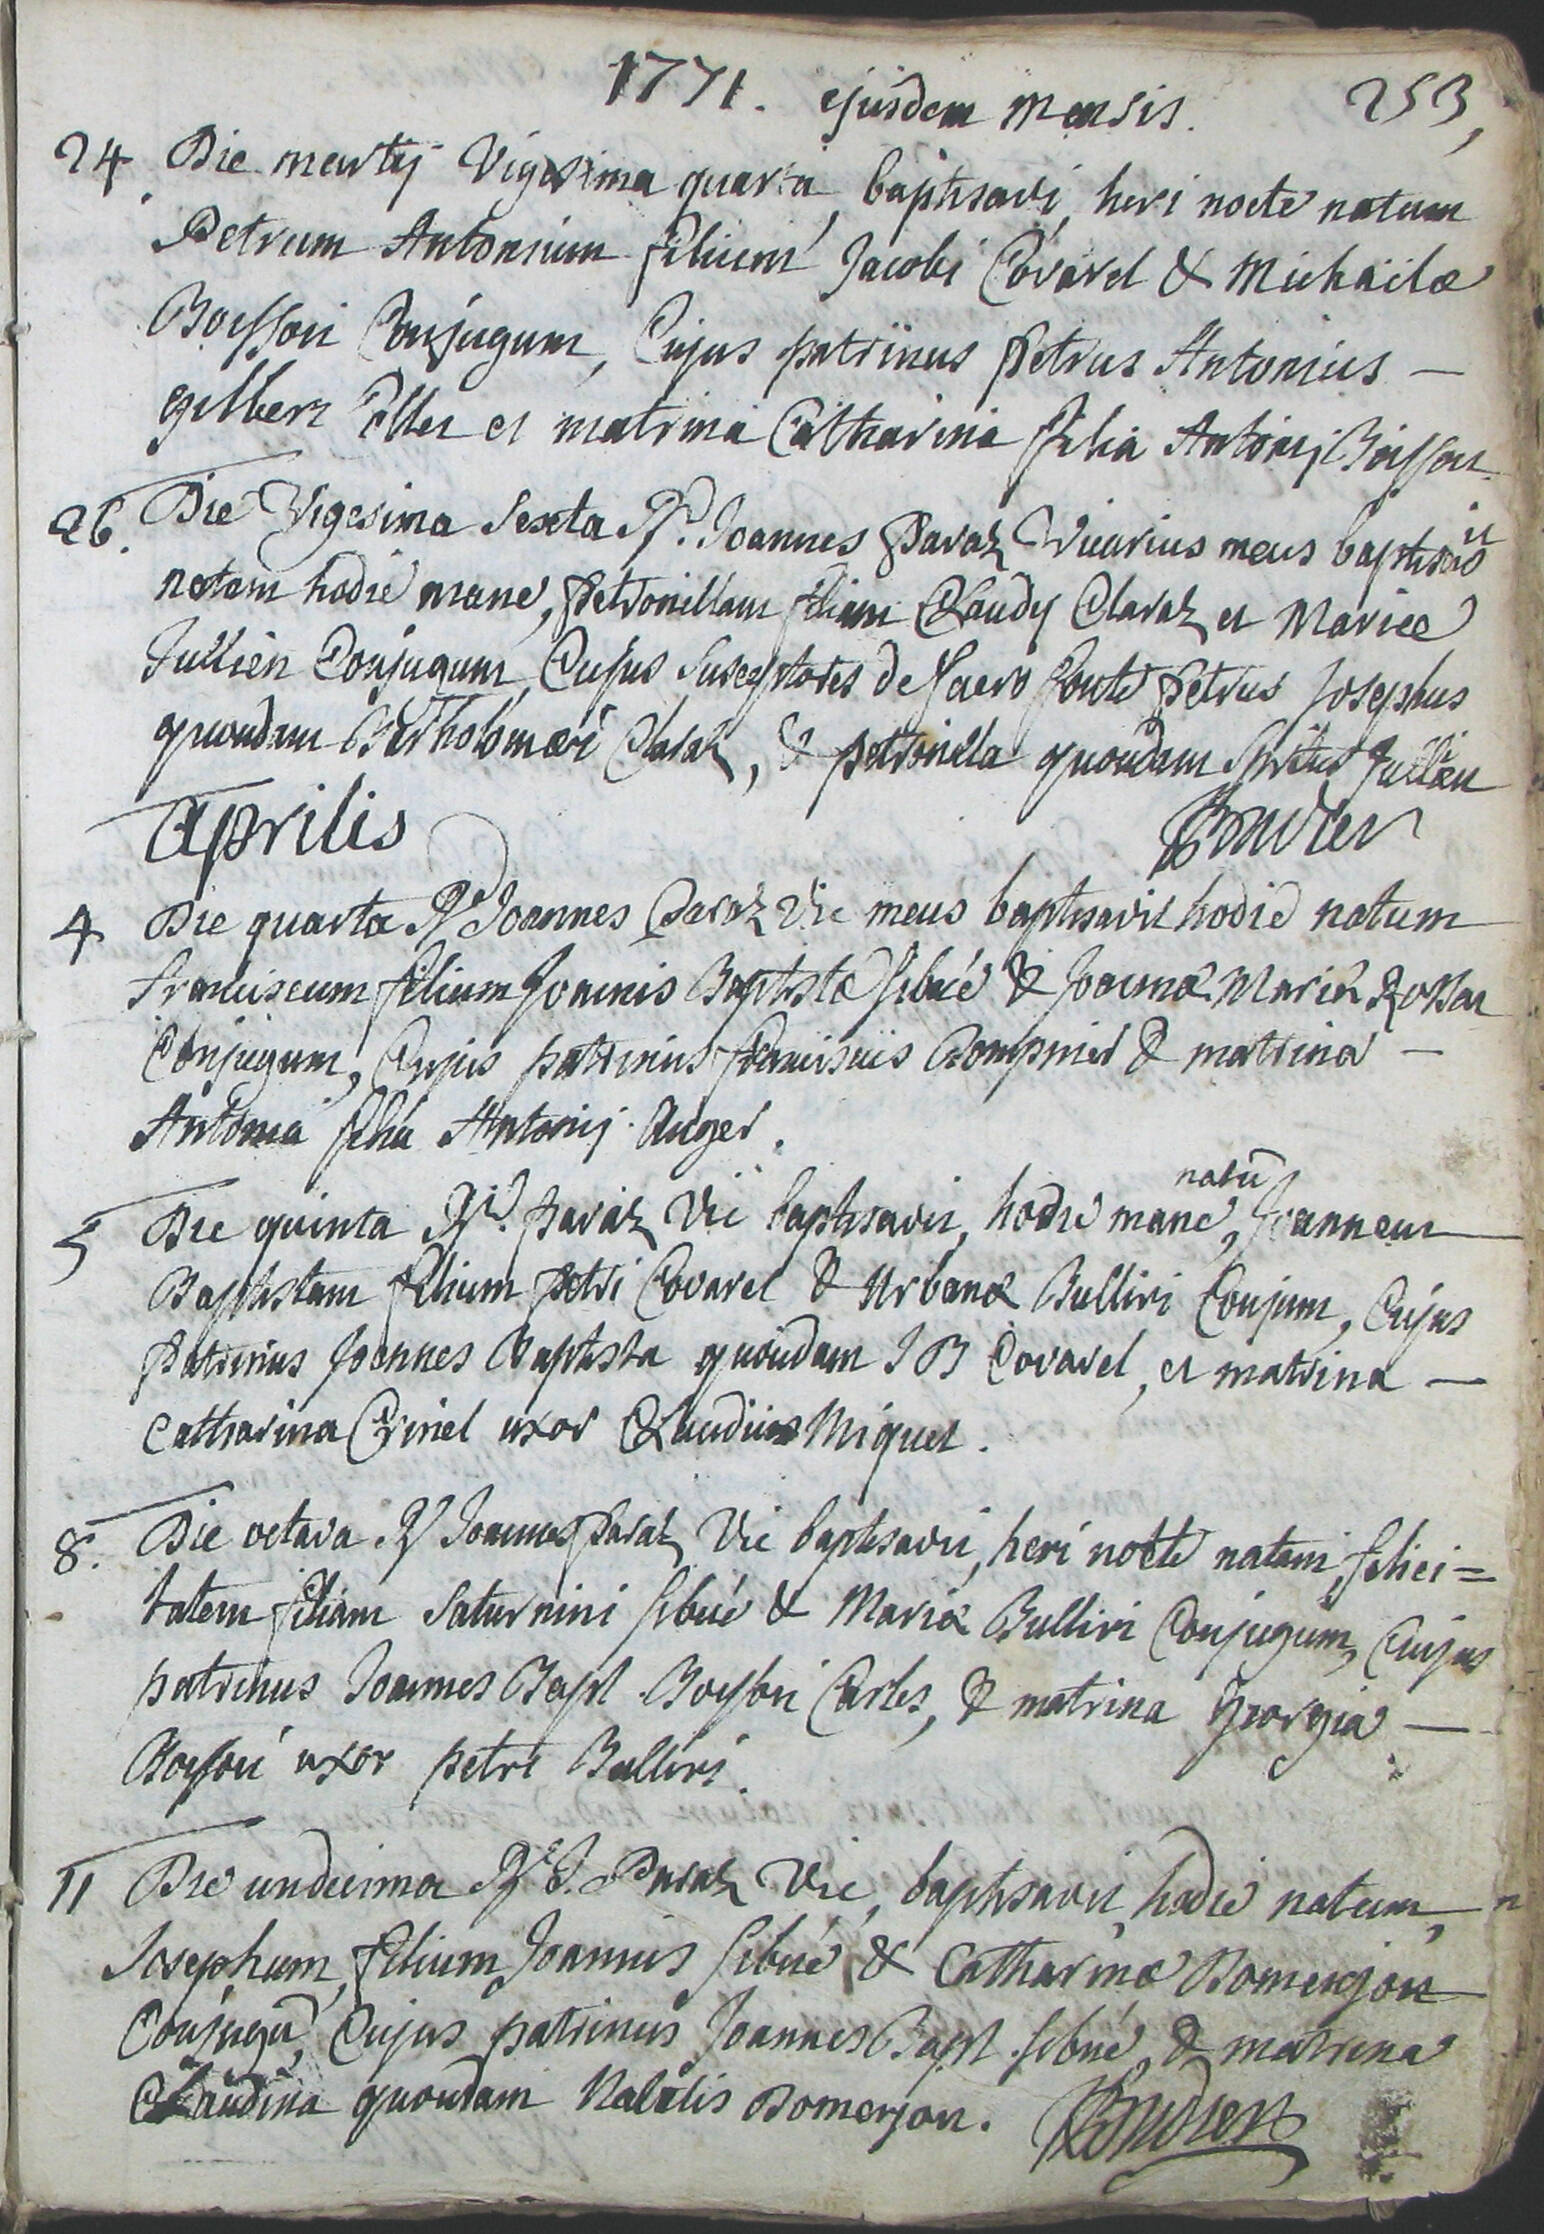 1771. ejusdem mensis. 253,
24. Die martij Vigesima quarta, baptisavi, heri nocte natum
Petrum Antonium filium Jacobi Covarel & Michaëlæ
Boisson Conjugum, Cujus patrinus Petrus Antonius —
gilbert Eller et matrina Catharina filia Antonij Boisson
26. Die Vigesima Sexta Rd. Joannes Paraz Vicarius meus baptisavit
natam hodie mane, Petronillam filiam Claudij Claraz et Mariæ
Jullien Conjugum, Cujus Susceptores de sacro fonte Petrus Josephus
quondam Bartholomæi Claraz, & petronilla quondam Jullien
Aprilis
4 Die quarta Rd Joannes Paraz Vic meus baptisavit hodie natum
Franciscum filium Joannis Baptistæ Sibué & Joannæ Mariæ
Conjugum, Cujus patrinus franciscus Dompnier & matrina —
Antonia filia Antonij Auger.
5 Die quinta Rd. Paraz Vic baptisavit, hodie mane, natū Joannem
Baptistam filium Petri Covarel & Urbanæ Bulliri Conjum, Cujus
Patrinus Joannes Baptista quondam J B Covarel, et matrina —
Catharina Crinel uxor Claudius Miquet.
8. Die octava Rd Joannes Paraz Vic baptisavit, heri nocte natam, felici=
tatem filiam Saturnini Sibué & Mariæ Bulliri Conjugum, Cujus
patrinus Joannes Bapt. Boisson Carles, & matrina Georgia —
Boisson uxor petri Bulliri.
11 Die undecima Rd J. Paraz Vic, baptisavit, hodie natum,
Josephum, filium Joannis Sibué & Catharinæ Domenjon
Conjugū, Cujus patrinus Joannes Bapt. Sibué, & matrina
Claudina quondam Natalis Domenjon.